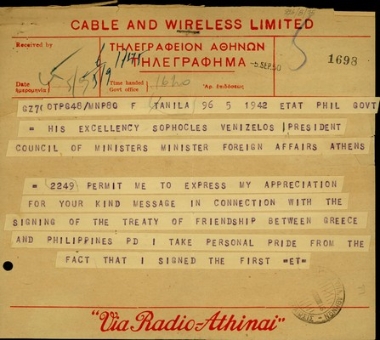 CABLE AND WIRELESS LIMITED
Received by
ΤΗΛΕΓΡΑΦΕΙΟΝ ΑΘΗΝΩΝ
ΤΗΛΕΓΡΑΦΗΜΑ
5 SEP.50
1698
Date
Time handed
Govt office
1640
GZ76 OTPG48/MNP80 F MANILA 96 5 1942 ETAT PHIL GOVT
= HIS EXCELLENCY SOPHOCLES VENIZELOS PRESIDENT
COUNCIL OF MINISTERS MINISTER FOREIGN AFFAIRS ATHENS
= 2249) PERMIT ME TO EXPRESS MY APPRECIATION
FOR YOUR KIND MESSAGE IN CONNECTION WITH THE
SIGNING OF THE TREATY OF FRIENDSHIP BETWEEN GREECE
AND PHILIPPINES PD I TAKE PERSONAL PRIDE FROM THE
FACT THAT I SIGNED THE FIRST =ET=
"Via Radio-Athinai"